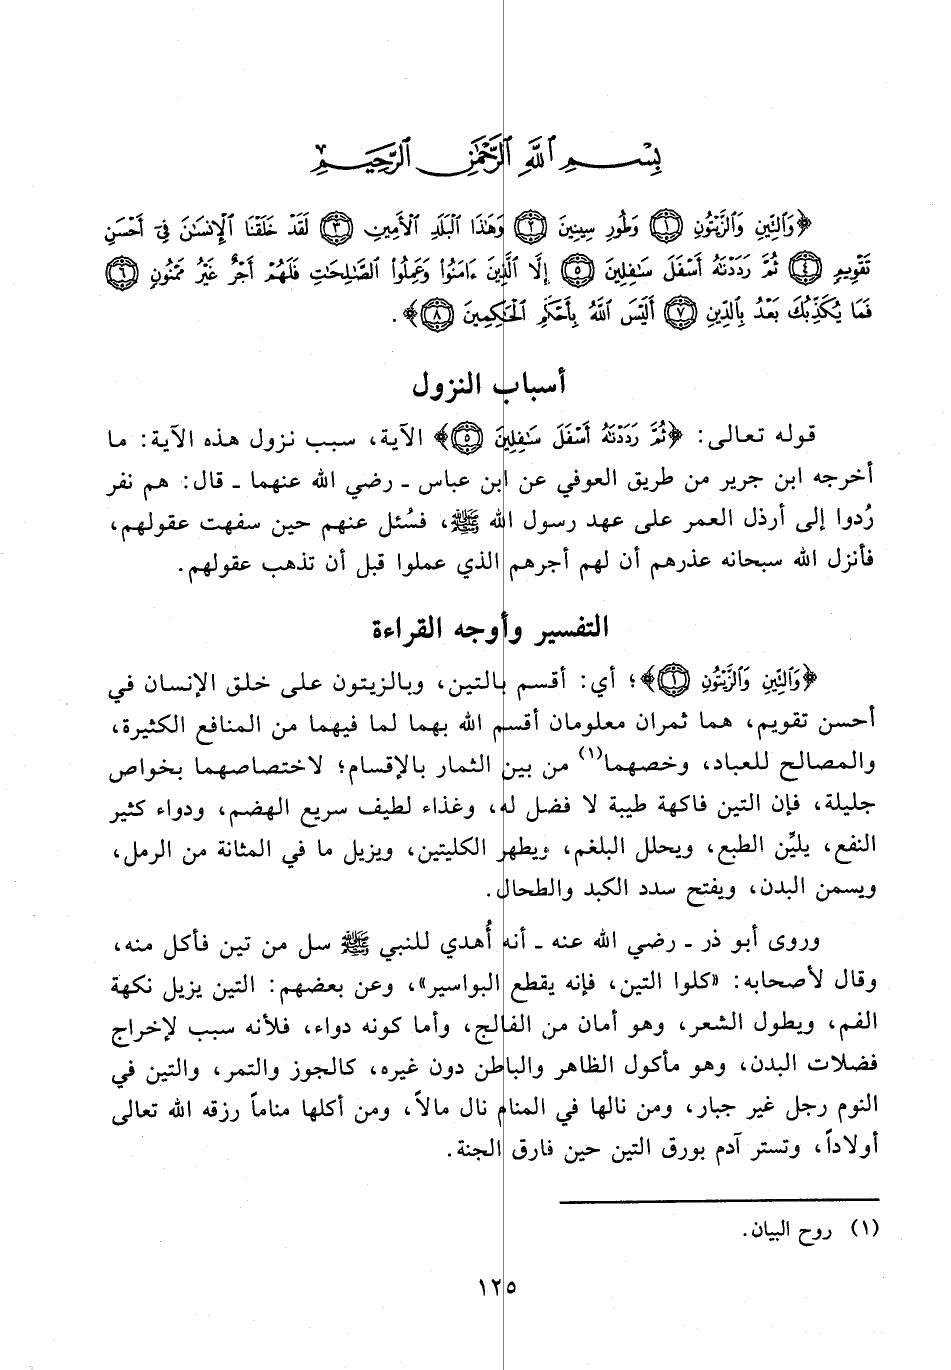 بِسْمِ ٱللَّهِ ٱلرَّحْمَٰنِ ٱلرَّحِيمِ
﴿وَٱلتِّينِ وَٱلزَّيْتُونِ ١ وَطُورِ سِينِينَ ٢ وَهَٰذَا ٱلْبَلَدِ ٱلْأَمِينِ ٣ لَقَدْ خَلَقْنَا ٱلْإِنسَٰنَ فِىٓ أَحْسَنِ
تَقْوِيمٍ ٤ ثُمَّ رَدَدْنَٰهُ أَسْفَلَ سَٰفِلِينَ ٥ إِلَّا ٱلَّذِينَ ءَامَنُوا۟ وَعَمِلُوا۟ ٱلصَّٰلِحَٰتِ فَلَهُمْ أَجْرٌ غَيْرُ مَمْنُونٍ ٦
فَمَا يُكَذِّبُكَ بَعْدُ بِٱلدِّينِ ٧ أَلَيْسَ ٱللَّهُ بِأَحْكَمِ ٱلْحَٰكِمِينَ ٨﴾.
أسباب النزول
قوله تعالى: ﴿ثُمَّ رَدَدْنَٰهُ أَسْفَلَ سَٰفِلِينَ ٥﴾ الآية، سبب نزول هذه الآية: ما
أخرجه ابن جرير من طريق العوفي عن ابن عباس ـ رضي الله عنهما ـ قال: هم نفر
رُدوا إلى أرذل العمر على عهد رسول الله ﷺ، فسُئل عنهم حين سفهت عقولهم،
فأنزل الله سبحانه عذرهم أن لهم أجرهم الذي عملوا قبل أن تذهب عقولهم.
التفسير وأوجه القراءة
﴿وَٱلتِّينِ وَٱلزَّيْتُونِ ١﴾؛ أي: أقسم بالتين، وبالزيتون على خلق الإنسان في
أحسن تقويم، هما ثمران معلومان أقسم الله بهما لما فيهما من المنافع الكثيرة،
والمصالح للعباد، وخصهما(١) من بين الثمار بالإقسام؛ لاختصاصهما بخواص
جليلة، فإن التين فاكهة طيبة لا فضل له، وغذاء لطيف سريع الهضم، ودواء كثير
النفع، يليِّن الطبع، ويحلل البلغم، ويطهر الكليتين، ويزيل ما في المثانة من الرمل،
ويسمن البدن، ويفتح سدد الكبد والطحال.
وروى أبو ذر ـ رضي الله عنه ـ أنه أُهدي للنبي ﷺ سل من تين فأكل منه،
وقال لأصحابه: «كلوا التين، فإنه يقطع البواسير»، وعن بعضهم: التين يزيل نكهة
الفم، ويطول الشعر، وهو أمان من الفالج، وأما كونه دواء، فلأنه سبب لإخراج
فضلات البدن، وهو مأكول الظاهر والباطن دون غيره، كالجوز والتمر، والتين في
النوم رجل غير جبار، ومن نالها في المنام نال مالاً، ومن أكلها مناماً رزقه الله تعالى
أولاداً، وتستر آدم بورق التين حين فارق الجنة.
(١) روح البيان.
١٢٥